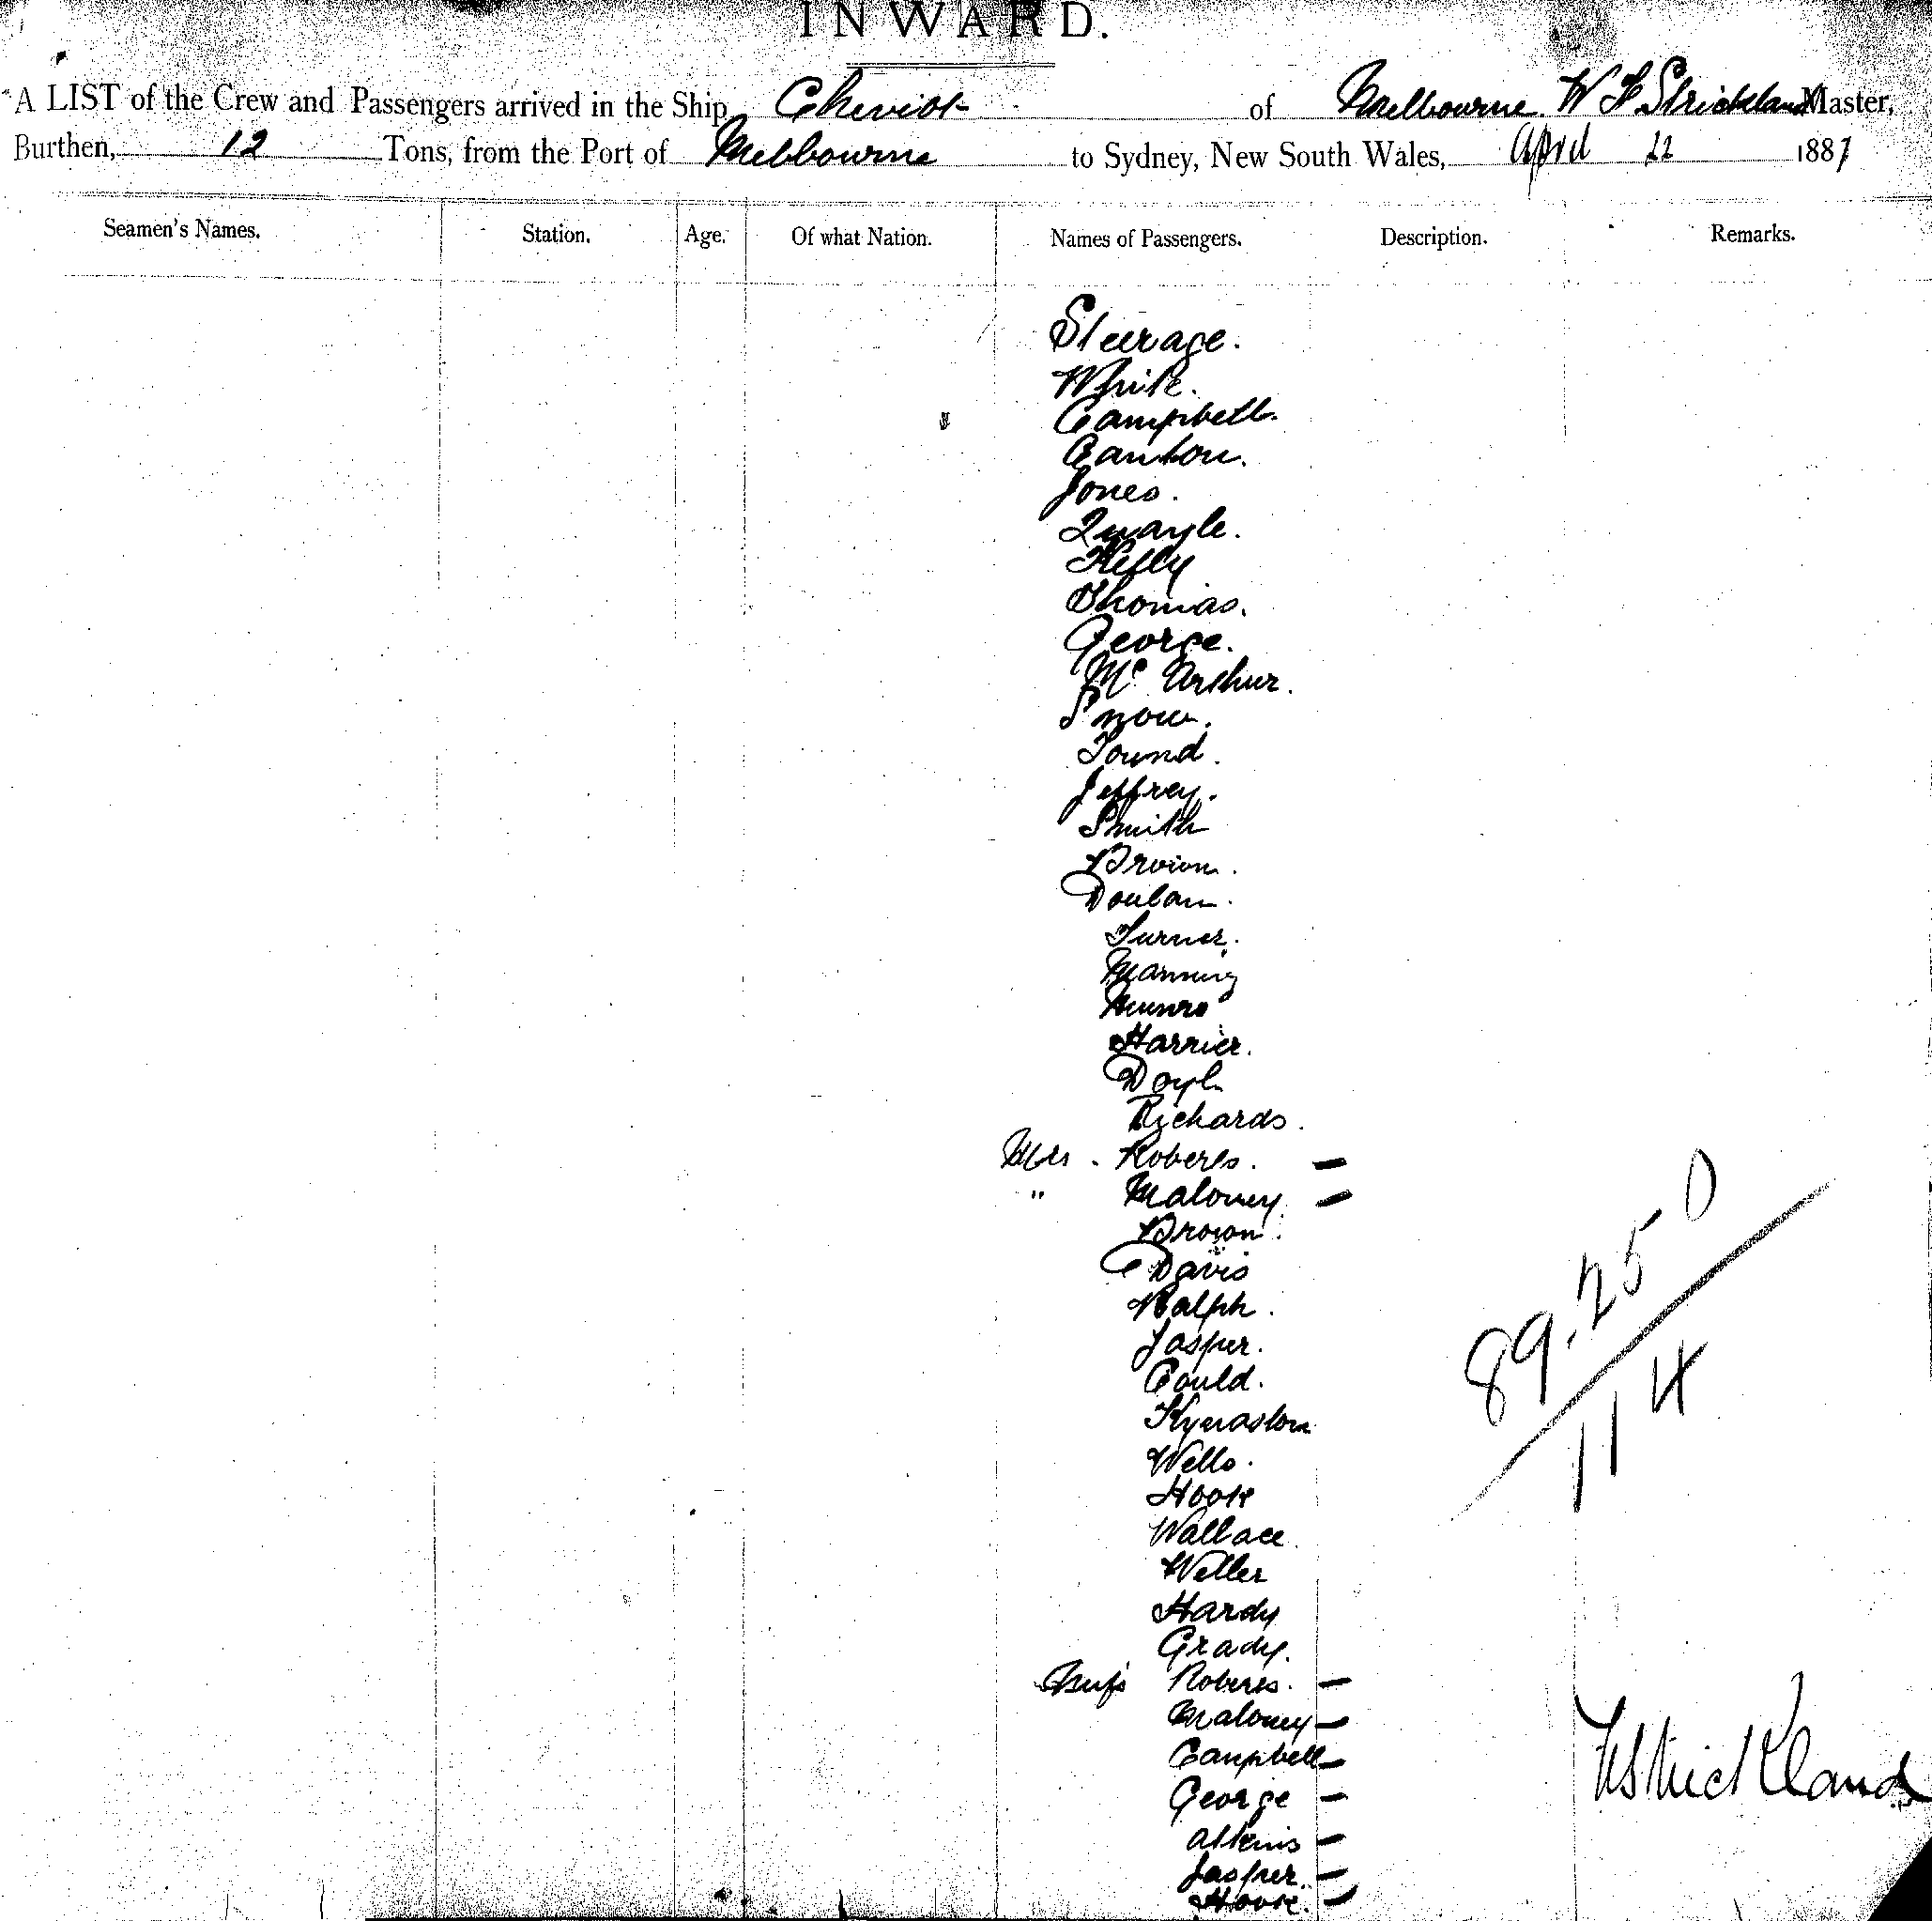 INWARD.
A LIST of the Crew and Passengers arrived in the Ship Cheviot of Melbourne. W F Strickland Master,
Burthen, 12 Tons, from the Port of Melbourne to Sydney, New South Wales, April 22 1887
Seamen's Names. Station. Age. Of what Nation. Names of Passengers. Description. Remarks.
Steerage.
White.
Campbell.
Canton.
Jones.
Quayle.
Kelly
Thomas.
George.
Mc Arthur.
Snow.
Pound.
Jeffrey.
Smith
Brown.
Doulan.
Turner.
Manning
Munro
Harrier.
Doyle
Richards.
Mrs. Roberts. –
" Maloney. –
Brown.
Davis
Ralph.
Jasper.
Gould.
Kynaston
Wells.
Hook
Wallace.
Weller
Hardy
Grady.
Miss Roberts. –
Maloney –
Campbell –
George –
Atkins –
Jasper. –
89.250
114
Strickland